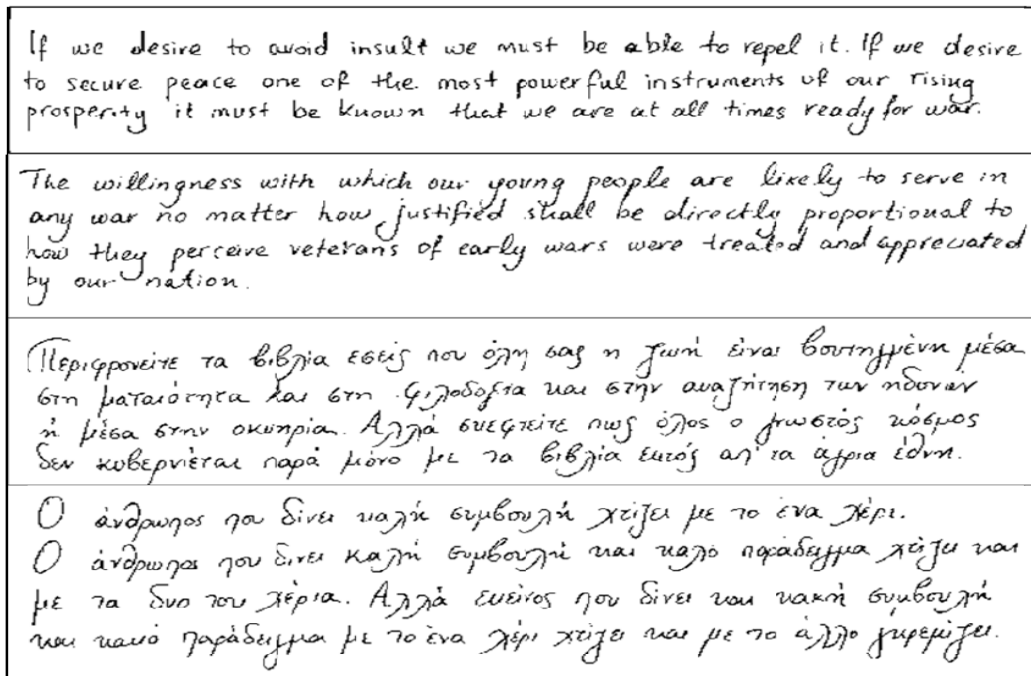 If we desire to avoid insult we must be able to repel it. If we desire
to secure peace one of the most powerful instruments of our rising
prosperity it must be known that we are at all times ready for war.
The willingness with which our young people are likely to serve in
any war no matter how justified shall be directly proportional to
how they perceive veterans of early wars were treated and appreciated
by our nation.
Περιφρονείτε τα βιβλία εσείς που όλη σας η ζωή είναι βουτηγμένη μέσα
στη ματαιότητα και στη φιλοδοξία και στην αναζήτηση των ηδονών
ή μέσα στην οκνηρία. Αλλά σκεφτείτε πως όλος ο γνωστός κόσμος
δεν κυβερνιέται παρά μόνο με τα βιβλία εκτός απ' τα άγρια έθνη.
Ο άνθρωπος που δίνει καλή συμβουλή χτίζει με το ένα χέρι.
Ο άνθρωπος που δίνει καλή συμβουλή και καλό παράδειγμα χτίζει και
με τα δυο του χέρια. Αλλά εκείνος που δίνει και κακή συμβουλή
και κακό παράδειγμα με το ένα χέρι χτίζει και με το άλλο γκρεμίζει.